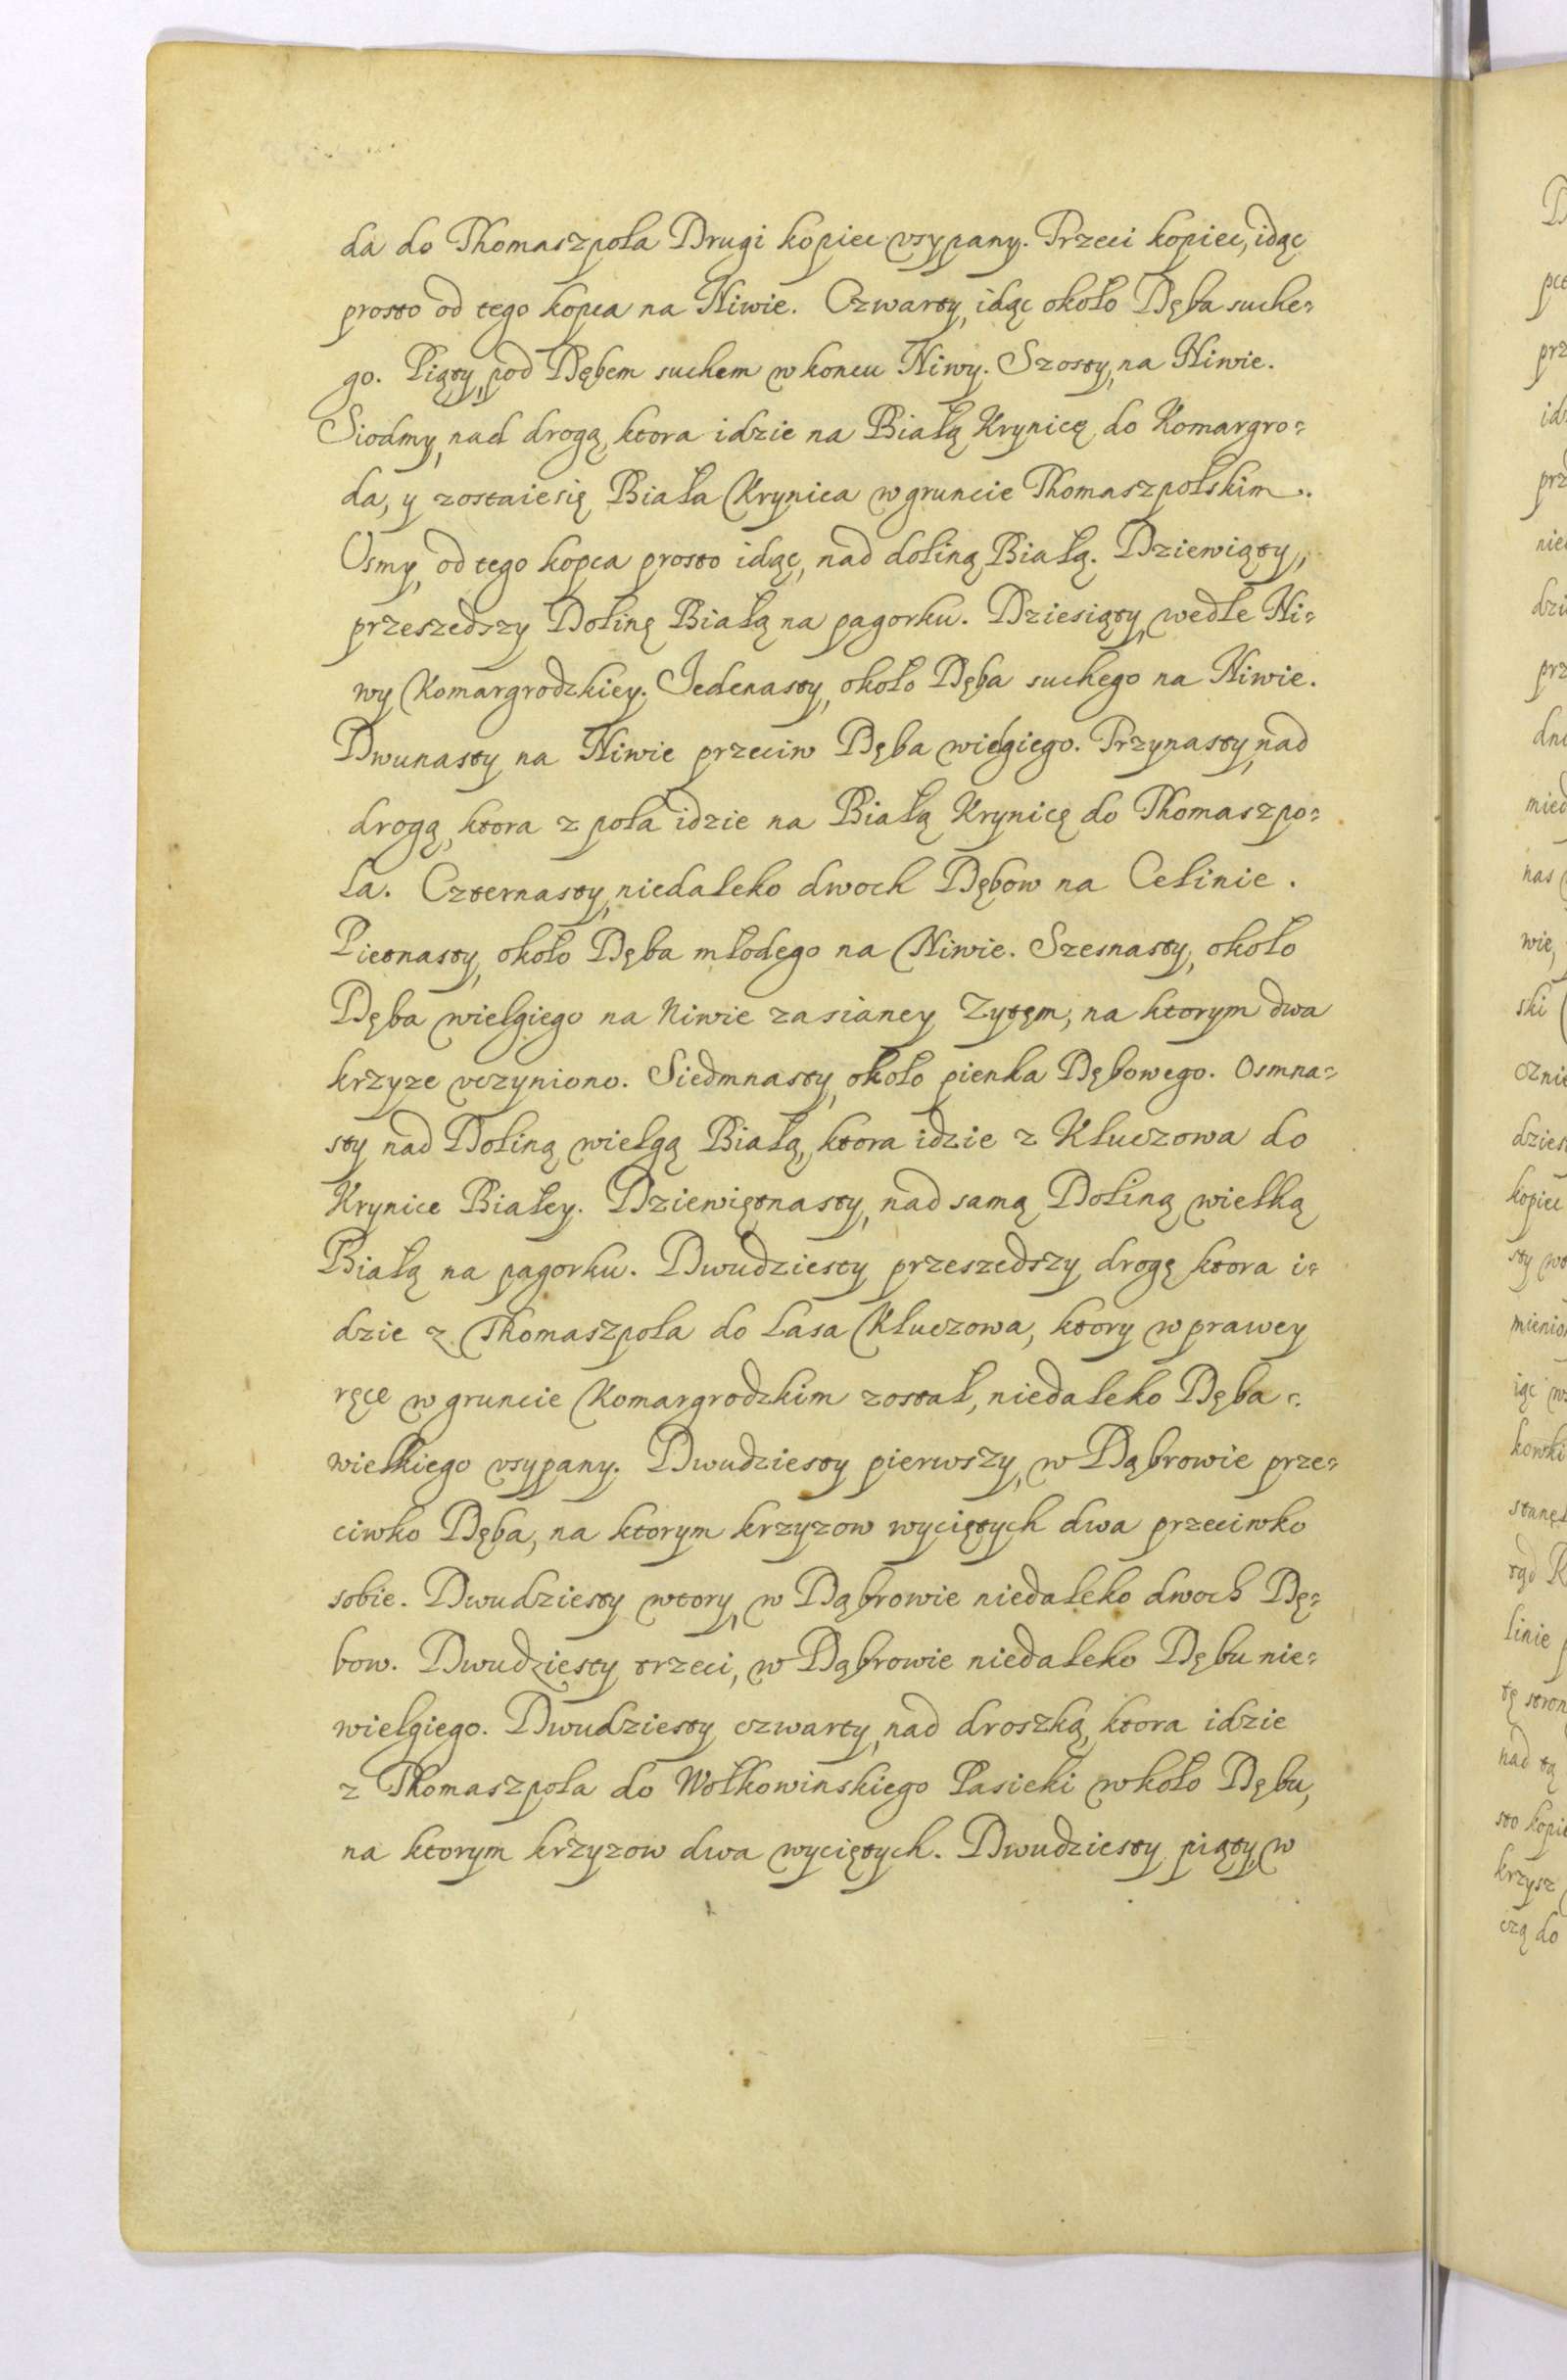 da do Thomaszpola Drugi kopiec vsypany. Trzeci kopiec, idąc
prosto od tego kopca na Niwie. Czwarty, idąc około Dęba suche-
go. Piąty, pod Dębem suchem w koncu Niwy. Szosty, na Niwie.
Siodmy, nad drogą, ktora idzie na Białą Krynicę do Komargro-
da, y zostaie się Biała Krynica w gruncie Thomaszpolskim.
Osmy, od tego kopca prosto idąc, nad doliną Białą. Dziewiąty,
przeszedszy Dolinę Białą na pagorku. Dziesiąty, wedle Ni-
wy Komargrodzkiey. Jedenasty, około Dęba suchego na Niwie.
Dwunasty na Niwie przeciw Dęba wielgiego. Trzynasty, nad
drogą, ktora z pola idzie na Białą Krynicę do Thomaszpo-
la. Czternasty, niedaleko dwoch Dębow na Celinie.
Pietnasty, około Dęba młodego na Niwie. Szesnasty, około
Dęba wielgiego na Niwie zasianey Zytem, na ktorym dwa
krzyze vczyniono. Siedmnasty, około pienka Dębowego. Osmna-
sty nad Doliną wielgą Białą, ktora idzie z Kluczowa do
Krynice Białey. Dziewiętnasty, nad samą Doliną wielką
Białą na pagorku. Dwudziesty przeszedszy drogę ktora i-
dzie z Thomaszpola do Lasa Kluczowa, ktory w prawey
ręce w gruncie Komargrodzkim został, niedaleko Dęba
wielkiego vsypany. Dwudziesty pierwszy, w Dąbrowie prze-
ciwko Dęba, na ktorym krzyzow wyciętych dwa przeciwko
sobie. Dwudziesty wtory, w Dąbrowie niedaleko dwoch Dę-
bow. Dwudziesty trzeci, w Dąbrowie niedaleko Dębu nie-
wielgiego. Dwudziesty czwarty, nad droszką, ktora idzie
z Thomaszpola do Wołkowinskiego Pasieki wkoło Dębu,
na ktorym krzyzow dwa wyciętych. Dwudziesty piąty, w